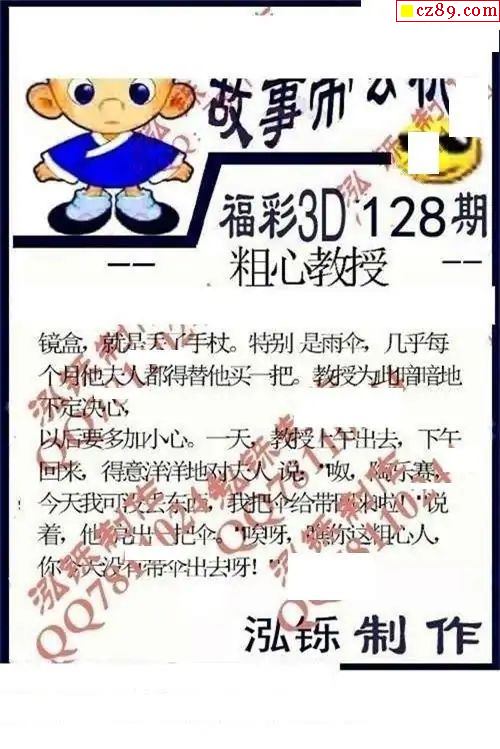 cz89.com
故事师
福彩3D 128期
-- 粗心教授 --
镜盒，就是丢了手杖。特别 是雨伞，几乎每
个月他夫人都得替他买一把。教授为此暗暗地
下定决心，
以后要多加小心。一天，教授上午出去，下午
回来，得意洋洋地对夫人 说："
今天我可没 东西，我把伞给带回来啦！"说
着，他 出 把伞。"哎呀，瞧你这粗心人，
你今天没有带伞出去呀！"
泓铄 制 作
泓铄制作
QQ78114024